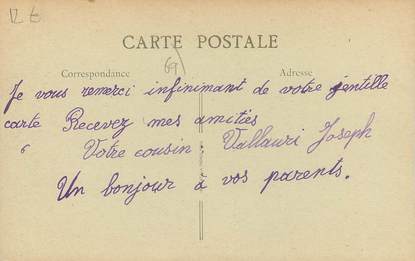 12 €
CARTE POSTALE
Correspondance
Adresse
69)
Je vous remerci infinimant de votre gentille
carte Recevez mes amitiés
Votre cousin. Vallauri Joseph
Un bonjour à vos parents.